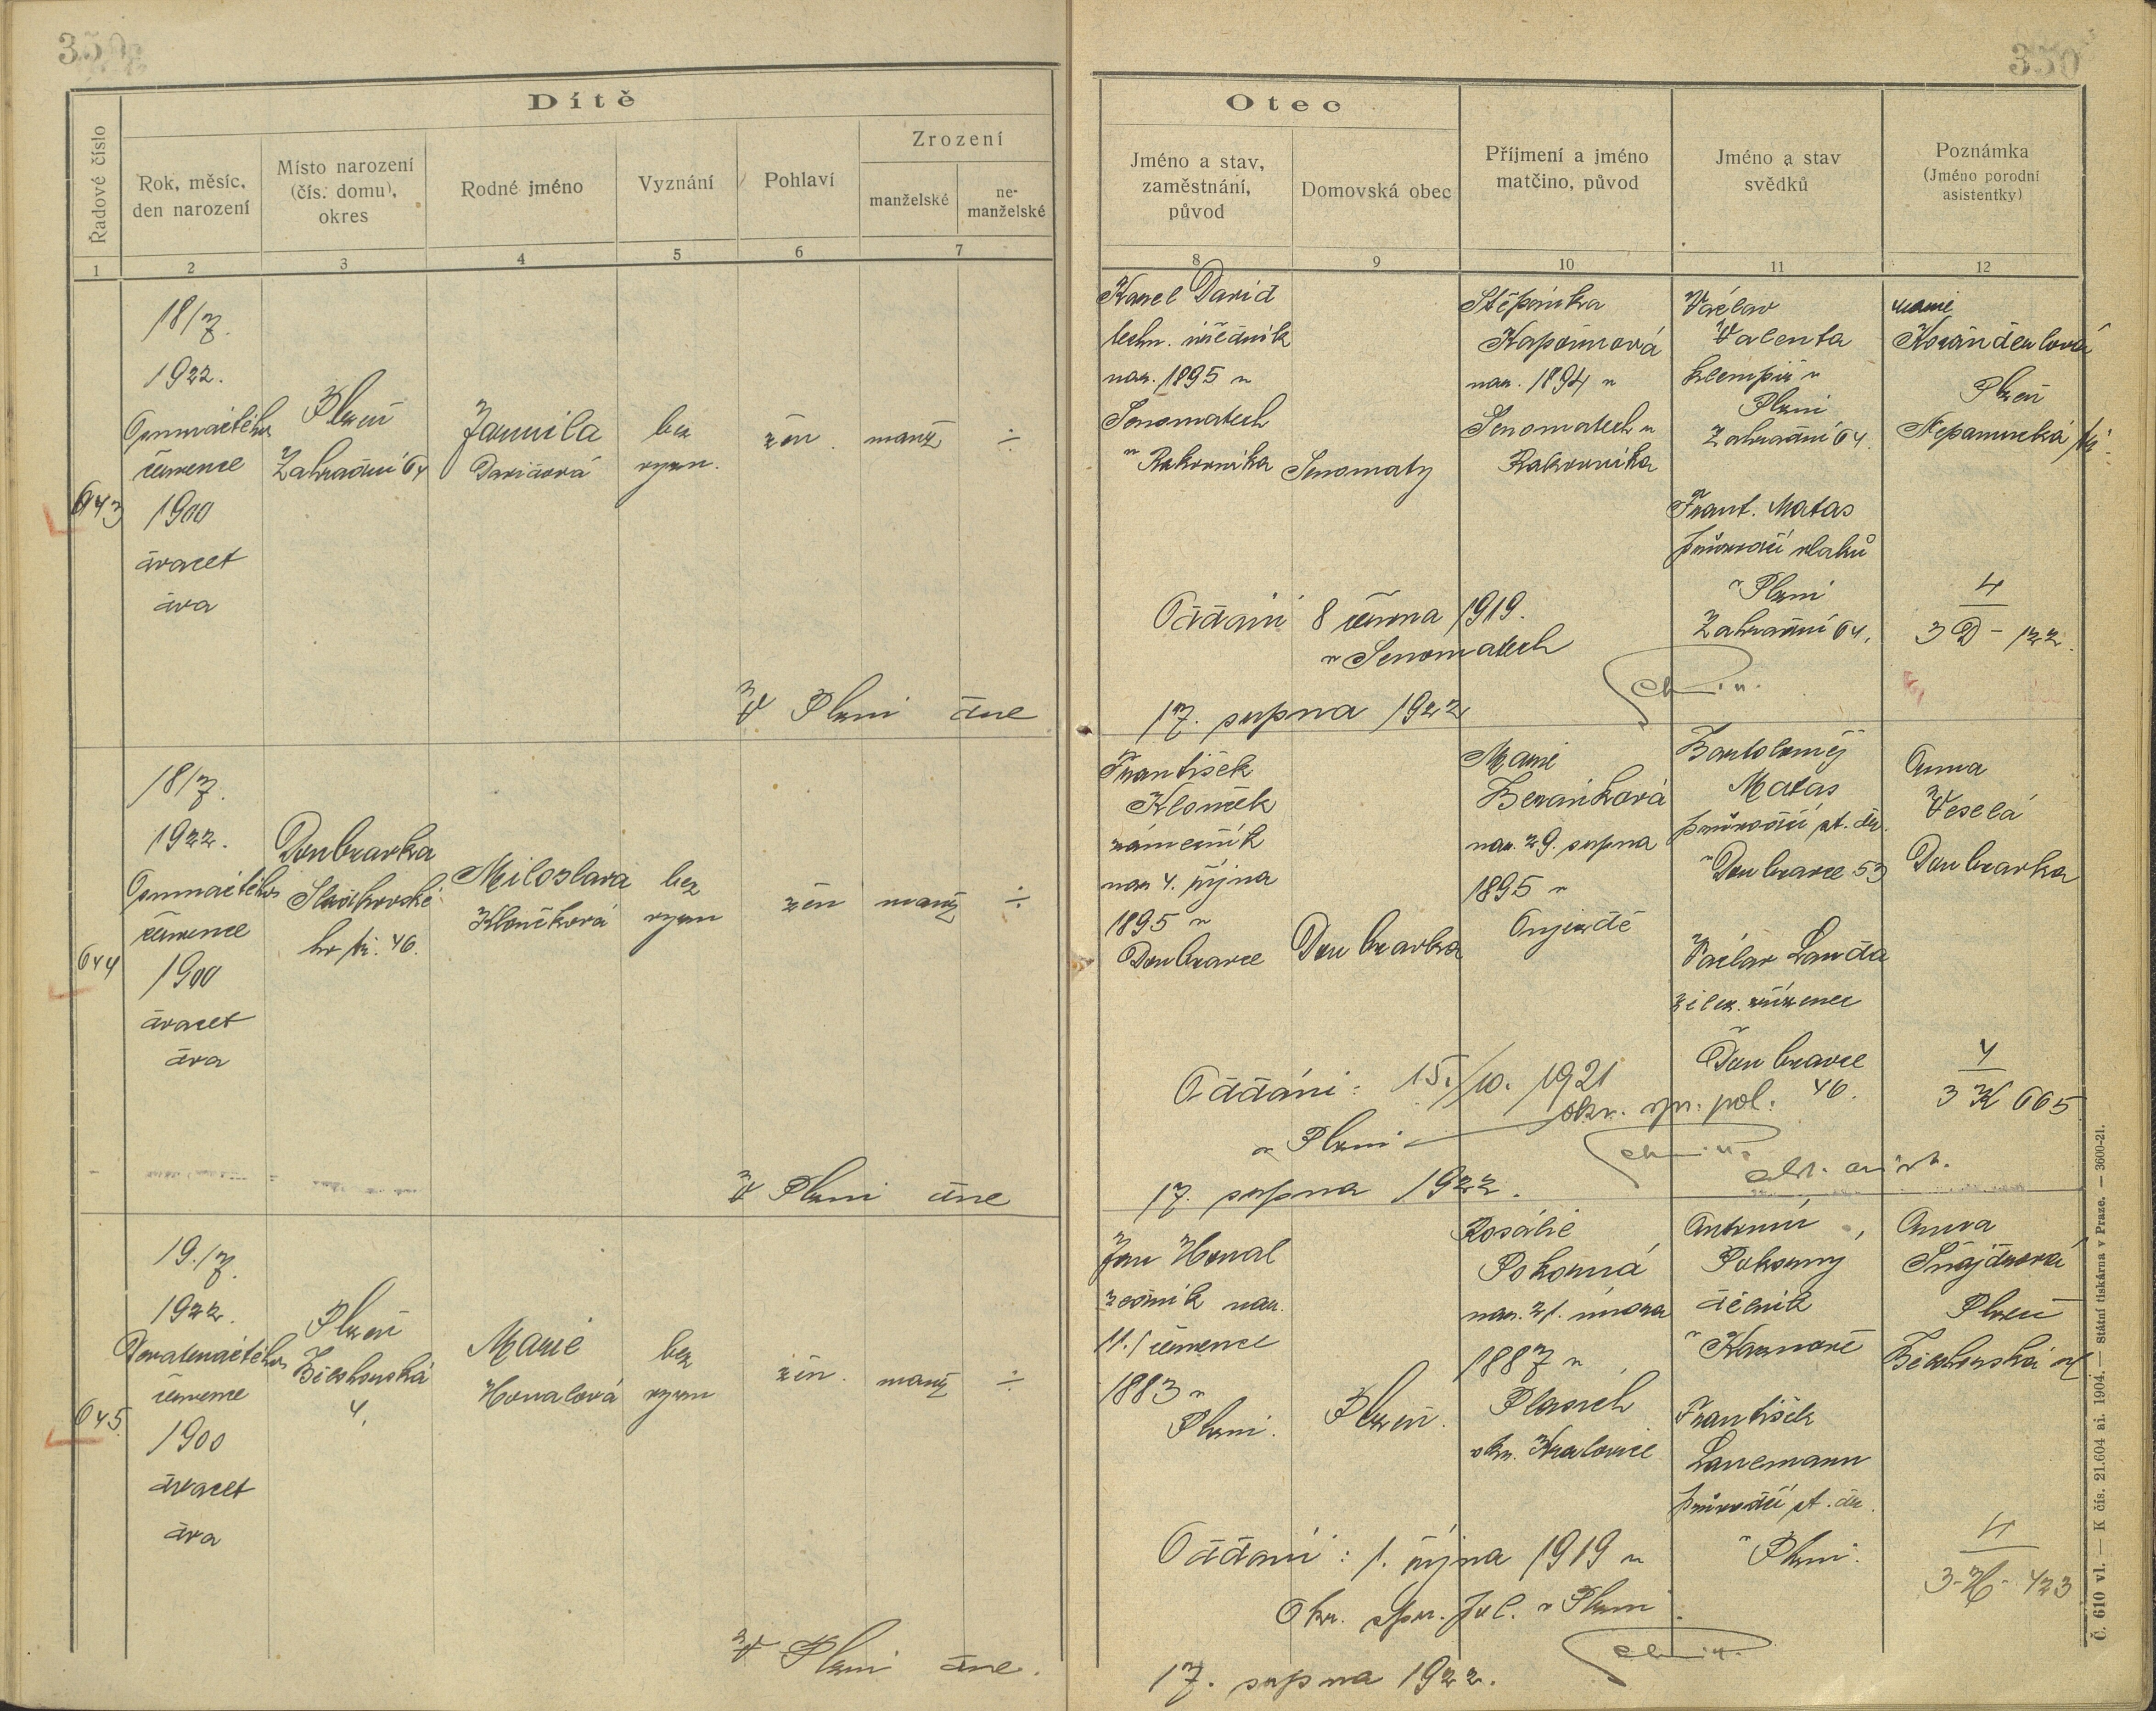 350
350
Dítě
Řadové číslo
Rok, měsíc,
den narození
Místo narození
(čís. domu),
okres
Rodné jméno
Vyznání
Pohlaví
Zrození
manželské
ne-
manželské
1
2
3
4
5
6
7
Otec
Jméno a stav,
zaměstnání,
původ
Domovská obec
Příjmení a jméno
matčino, původ
Jméno a stav
svědků
Poznámka
(Jméno porodní
asistentky)
8
9
10
11
12
643
18/7.
1922.
Osmnáctého
července
1900
dvacet
dva
Plzeň
Zahradní 64
Jarmila
Davidová
bez
vyzn.
žen.
manž
÷
Karel David
techn. úředník
nar. 1895 v
Senomatech
u Rakovníka
Senomaty
Štěpánka
Kapounová
nar. 1894 v
Senomatech u
Rakovníka
Václav
Valenta
klempíř v
Plzni
Zahradní 64.
Frant. Matas
průvodčí vlaků
v Plzni
Zahradní 64.
Marie
Plzeň
Nepomucká tř.
Oddáni 8 června 1919.
v Senomatech
4
3 D - 122.
V Plzni dne
17. srpna 1922
644
18/7.
1922.
Osmnáctého
července
1900
dvacet
dva
Doubravka
hr. tř. 46.
Miloslava
Klončková
bez
vyzn
žen
manž
÷
František
Klonček
zámečník
nar 4. října
1895 v
Doubravce
Doubravka
Marie
Beránková
nar. 29. srpna
1895 v
Oujezdě
Bartoloměj
Matas
průvodčí st. dr.
v Doubravce 53
Václav Landa
želez. zřízenec
v
Doubravce
46.
Anna
Veselá
Doubravka
Oddáni: 15./10. 1921
okr. spr. pol.
v Plzni
4
3 K 665
V Plzni dne
17. srpna 1922.
645
19./7.
1922.
Devatenáctého
července
1900
dvacet
dva
Plzeň
4.
Marie
Honalová
bez
vyzn
žen.
manž
÷
Jan Honal
zedník nar.
11./ července
1883 v
Plzni.
Plzeň.
Rosálie
Pokorná
nar. 21. února
1887 v
Plasích
okr. Kralovice
Antonín
Pokorný
dělník
v Kaznově
František
Lanemann
průvodčí st. dr.
v Plzni.
Anna
Šnajdrová
Plzeň
Oddáni: 1. října 1919 u
Okr. spr. pol. v Plzni.
4
3-H- 423
V Plzni dne.
17. srpna 1922.
Č. 610 vl. — K čís. 21.604 ai. 1904. — Státní tiskárna v Praze. — 3600-21.